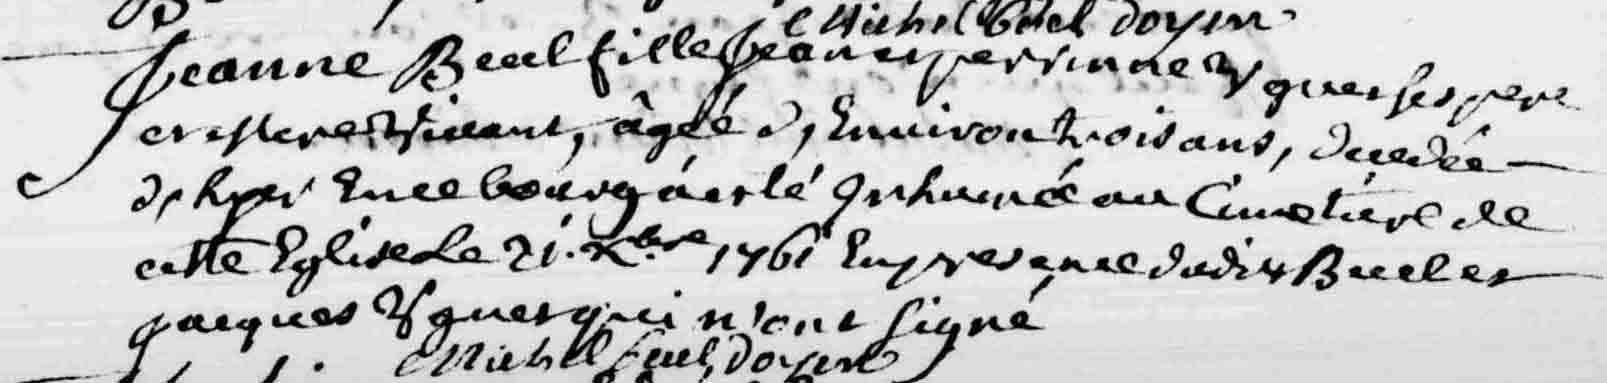 Michel buel doyen
Jeanne Beuel fille Jean et perrinne Vguet ses pere
et mere Viuant, âgée d'Enuiron trois ans, decedée
d'hyer En ce bourg á esté Inhumée au Cimetiere de
cette Eglise Le 21. Xbre 1761 En presence dudit Beuel et
jacques Vguet qui n'ont signé
Michel buel doyen